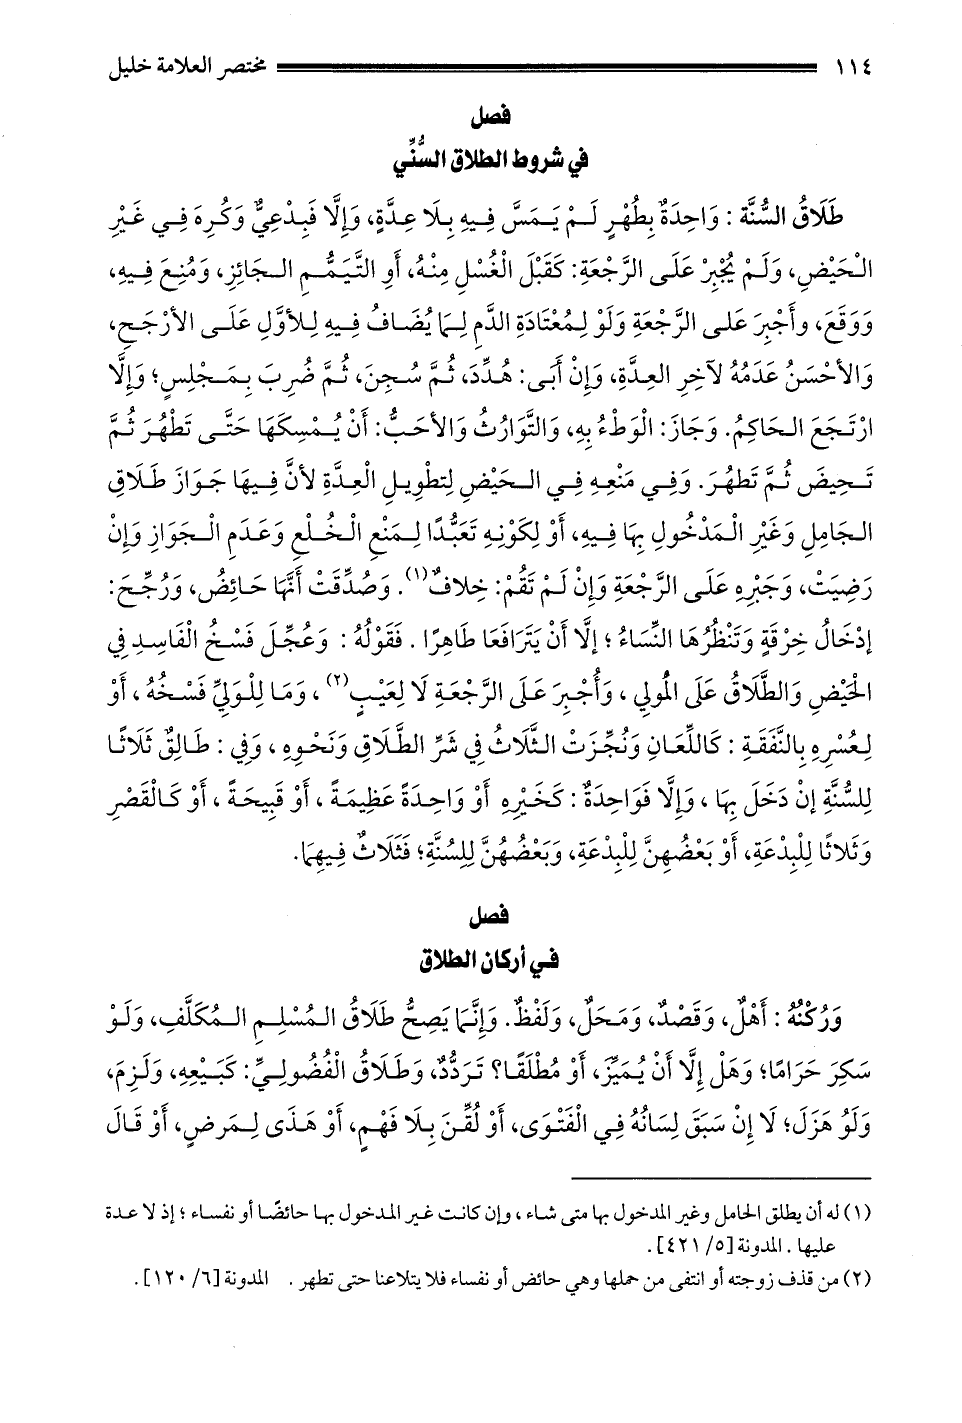 ١١٤ مختصر العلامة خليل
فصل
في شروط الطلاق السُّنِّي
طَلَاقُ السُّنَّة : وَاحِدَةٌ بِطُهْرٍ لَمْ يَمَسَّ فِيهِ بِلَا عِدَّةٍ، وَإِلَّا فَبِدْعِيٌّ وَكُرِهَ فِي غَيْرِ
الْحَيْضِ، وَلَمْ يُجْبَرْ عَلَى الرَّجْعَةِ: كَقَبْلَ الْغُسْلِ مِنْهُ، أَوِ التَّيَمُّمِ الجَائِزِ، وَمُنِعَ فِيهِ،
وَوَقَعَ، وأُجْبِرَ عَلى الرَّجْعَةِ وَلَوْ لِمُعْتَادَةِ الدَّمِ لِمَا يُضَافُ فِيهِ لِلأوَّلِ عَلَى الأرْجَحِ،
وَالأحْسَنُ عَدَمُهُ لآخِرِ العِدَّةِ، وَإِنْ أَبَى: هُدِّدَ، ثُمَّ سُجِنَ، ثُمَّ ضُرِبَ بِمَجْلِسٍ؛ وَإِلَّا
ارْتَجَعَ الحَاكِمُ. وَجَازَ: الْوَطْءُ بِهِ، وَالتَّوَارُثُ وَالأحَبُّ: أَنْ يُمْسِكَهَا حَتَّى تَطْهُرَ ثُمَّ
تَحِيضَ ثُمَّ تَطهُرَ. وَفِي مَنْعِهِ فِي الحَيْضِ لِتطْوِيلِ الْعِدَّةِ لأنَّ فِيهَا جَوَازَ طَلَاقِ
الحَامِلِ وَغَيْرِ الْمَدْخُولِ بِهَا فِيهِ، أَوْ لِكَوْنِهِ تَعَبُّدًا لِمَنْعِ الْخُلْعِ وَعَدَمِ الْجَوَازِ وَإِنْ
رَضِيَتْ، وَجَبْرِهِ عَلَى الرَّجْعَةِ وَإِنْ لَمْ تَقُمْ: خِلافٌ(١). وَصُدِّقَتْ أَنَّهَا حَائِضٌ، وَرُجِّحَ:
إدْخَالُ خِرْقَةٍ وَتَنْظُرُهَا النِّسَاءُ ؛ إلَّا أَنْ يَتَرَافَعَا طَاهِرًا . فَقَوْلُهُ : وَعُجِّلَ فَسْخُ الْفَاسِدِ فِي
الحَيْضِ وَالطَّلَاقُ عَلَى المُولِي ، وَأُجْبِرَ عَلَى الرَّجْعَةِ لَا لِعَيْبٍ(٢) ، وَمَا لِلْوَلِيِّ فَسْخُهُ ، أَوْ
لِعُسْرِهِ بِالنَّفَقَةِ : كَاللِّعَانِ وَنُجِّزَتْ الثَّلَاثُ فِي شَرِّ الطَّلَاقِ وَنَحْوِهِ ، وَفِي : طَالِقٌ ثَلَاثًا
لِلسُّنَّةِ إِنْ دَخَلَ بِهَا ، وَإِلَّا فَوَاحِدَةٌ : كَخَيْرِهِ أَوْ وَاحِدَةً عَظِيمَةً ، أَوْ قَبِيحَةً ، أَوْ كَالْقَصْرِ
وَثَلاثًا لِلْبِدْعَةِ، أَوْ بَعْضُهنَّ لِلْبِدْعَةِ، وَبَعْضُهُنَّ لِلِسُنَّةِ؛ فَثَلَاثٌ فِيهِمَا.
فصل
في أركان الطلاق
وَرُكْنُهُ : أَهْلٌ، وَقَصْدٌ، وَمَحَلٌ، وَلَفْظٌ. وَإِنَّمَا يَصِحُّ طَلَاقُ المُسْلِمِ المُكَلَّفِ، وَلَوْ
سَكِرَ حَرَامًا؛ وَهَلْ إِلَّا أَنْ يُمَيِّزَ، أَوْ مُطْلَقًا؟ تَرَدُّدٌ، وَطَلَاقُ الْفُضُولِيِّ: كَبَيْعِهِ، وَلَزِمَ،
وَلَوْ هَزَلَ؛ لَا إِنْ سَبَقَ لِسَانُهُ فِي الْفَتْوَى، أَوْ لُقِّنَ بِلَا فَهْمٍ، أَوْ هَذَى لِمَرضٍ، أَوْ قَالَ
(١) له أن يطلق الحامل وغير المدخول بها متى شاء ، وإن كانت غير المدخول بها حائضًا أو نفساء ؛ إذ لا عدة
عليها . المدونة [٥/ ٤٢١].
(٢) من قذف زوجته أو انتفى من حملها وهي حائض أو نفساء فلا يتلاعنا حتى تطهر . المدونة [٦/ ١٢٠].